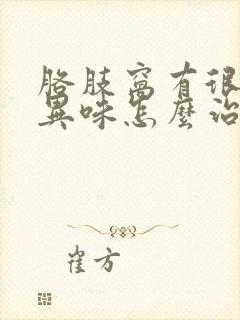 胳肢窩有很
異味怎麼治
崔方